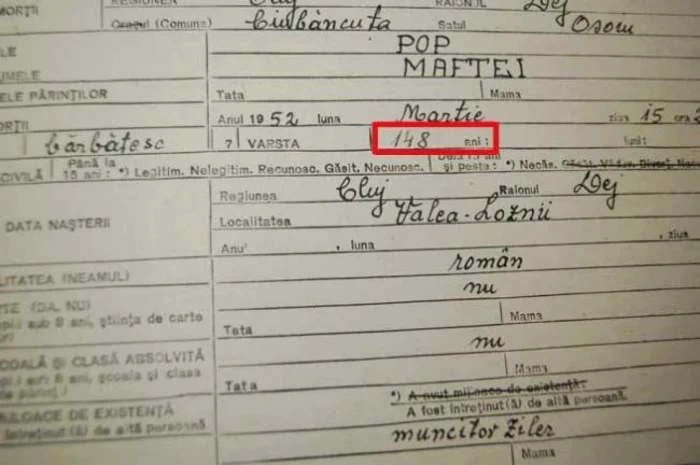 MORȚII REGIUNEA Cluj RAIONUL Dej
Orașul (Comuna) Ciubăncuța Satul Osoru
POP
MAFTEI
ELE PĂRINȚILOR Tata Mama
Anul 1952 luna Martie ziua 15 ora
bărbătesc 7 VARSTA 148 ani: luni:
CIVILĂ Până la 15 ani: *) Legitim. Nelegitim. Recunosc. Găsit. Necunosc. și peste: *) Necăs.
Regiunea Cluj Raionul Dej
DATA NAȘTERII Localitatea Valea-Loznii
Anul , luna , ziua
LITATEA (NEAMUL) român
TE (DA, NU) nu
sub 8 ani, știința de carte
Tata Mama
COALĂ ȘI CLASĂ ABSOLVITĂ nu
sub 8 ani, școala și clasa
Tata Mama
*) A avut mijloace de existență:
LOACE DE EXISTENȚĂ A fost întreținut(ă) de altă persoană.
întreținut(ă) de altă persoană) muncitor Ziler
Mama